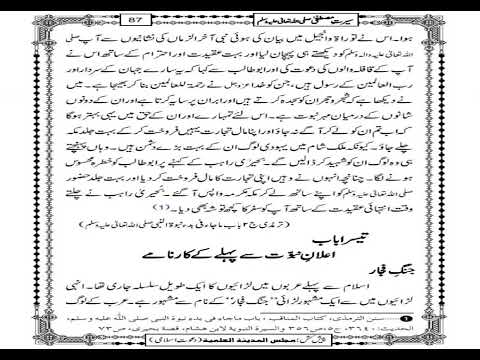 سیرتِ مصطفی صلی اللہ تعالیٰ علیہ وسلم 87
ہوا۔ اس نے توراۃ و انجیل میں بیان کی ہوئی نبی آخر الزماں کی نشانیوں سے آپ صلی
اللہ تعالیٰ علیہ والہ وسلم کو دیکھتے ہی پہچان لیا اور بہت عقیدت اور احترام کے ساتھ اس نے
آپ کے قافلہ والوں کی دعوت کی اور ابو طالب سے کہا کہ یہ سارے جہان کے سردار اور
رب العالمین کے رسول ہیں، جن کو خدا عزوجل نے رحمۃ للعالمین بنا کر بھیجا ہے۔ میں
نے دیکھا ہے کہ شجر و حجر ان کو سجدہ کرتے ہیں اور ابر ان پر سایہ کرتا ہے اور ان کے دونوں
شانوں کے درمیان مہر نبوت ہے۔ اس لئے تمہارے اور ان کے حق میں یہی بہتر ہو گا
کہ اب تم ان کو لے کر آگے نہ جاؤ اور اپنا مال تجارت یہیں فروخت کر کے بہت جلد مکہ
چلے جاؤ۔ کیونکہ ملک شام میں یہودی لوگ ان کے بہت بڑے دشمن ہیں۔ وہاں پہنچتے
ہی وہ لوگ ان کو شہید کر ڈالیں گے۔ بحیریٰ راہب کے کہنے پر ابو طالب کو خطرہ محسوس
ہونے لگا۔ چنانچہ انہوں نے وہیں اپنی تجارت کا مال فروخت کر دیا اور بہت جلد حضور
صلی اللہ تعالیٰ علیہ وسلم کو اپنے ساتھ لے کر مکہ مکرمہ واپس آ گئے۔ بحیریٰ راہب نے چلتے
وقت انتہائی عقیدت کے ساتھ آپ کو سفر کا کچھ توشہ بھی دیا۔ (۱)
(ترمذی ج۲ باب ماجاء فی بدء نبوۃ النبی صلی اللہ تعالیٰ علیہ وسلم)
تیسرا باب
اعلانِ نبوّت سے پہلے کے کارنامے
جنگِ فجار
اسلام سے پہلے عربوں میں لڑائیوں کا ایک طویل سلسلہ جاری تھا۔ انہی
لڑائیوں میں سے ایک مشہور لڑائی ”جنگِ فجار“ کے نام سے مشہور ہے۔ عرب کے لوگ
۱ سنن الترمذی، کتاب المناقب، باب ماجاء فی بدء نبوۃ النبی صلی اللہ علیہ وسلم،
الحدیث: ۳۶۴۰، ج۵، ص۳۵۶ والسیرۃ النبویۃ لابن ہشام، قصۃ بحیری، ص۷۳
پیش کش: مجلس المدینۃ العلمیۃ (دعوت اسلامی)